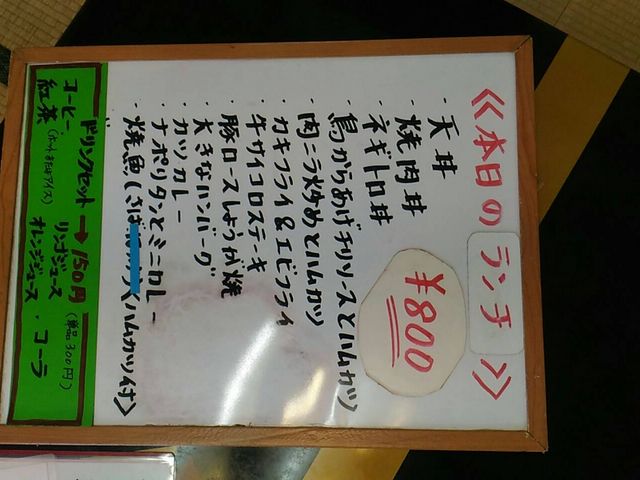 《本日のランチ》
¥800
・天丼
・焼肉丼
・ネギトロ丼
・鳥からあげチリソースとハムカツ
・肉ニラ炒めとハムカツ
・カキフライ&エビフライ
・牛サイコロステーキ
・豚ロースしょうが焼
・大きなハンバーグ
・カツカレー
・ナポリタンとミニカレー
・焼魚(さば <ハムカツ付>
ドリンクセット→150円(単品300円)
コーヒー リンゴジュース・コーラ
紅茶(ホットまたはアイス) オレンジジュース